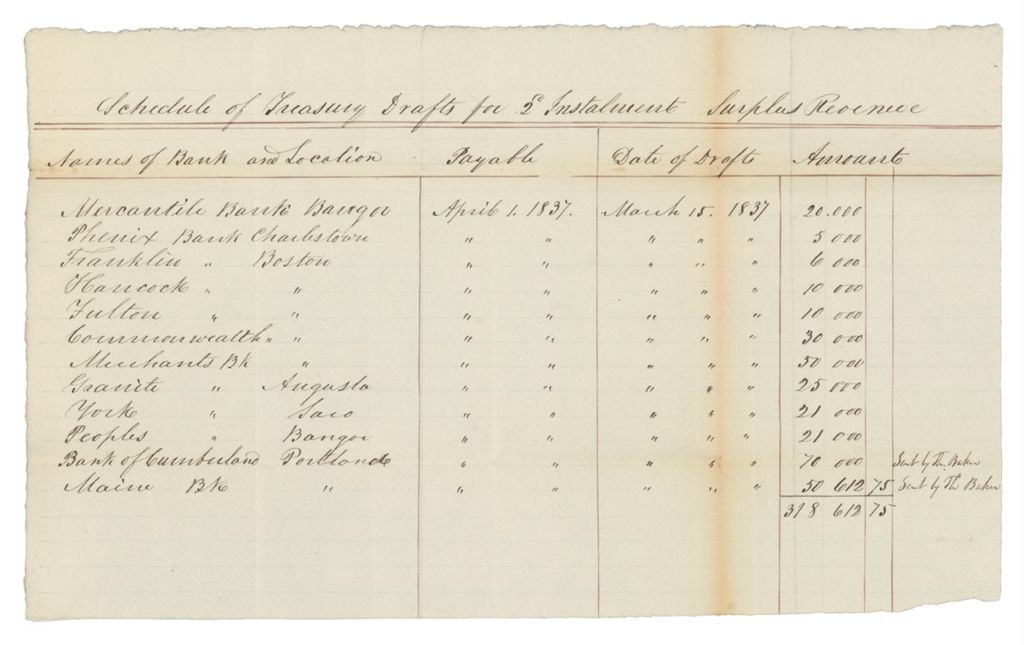 Schedule of Treasury Drafts for 2d Instalment Surplus Revenue
Names of Bank and Location Payable Date of Drafts Amount
Mercantile Bank Bangor April 1. 1837. March 15. 1837 20.000
Phenix Bank Charlestown " " " " " 5 000
Franklin " Boston " " " " " 6 000
Hancock " " " " " " " 10 000
Fulton " " " " " " " 10 000
Commonwealth " " " " " " " 30 000
Merchants Bk " " " " " " 50 000
Granite " Augusta " " " " " 25 000
York " Saco " " " " " 21 000
Peoples " Bangor " " " " " 21 000
Bank of Cumberland Portland " " " " " 70 000 Sent by Th. Baker
Maine Bk " " " " " " 50 612 75 Sent by Th Baker
318 612 75